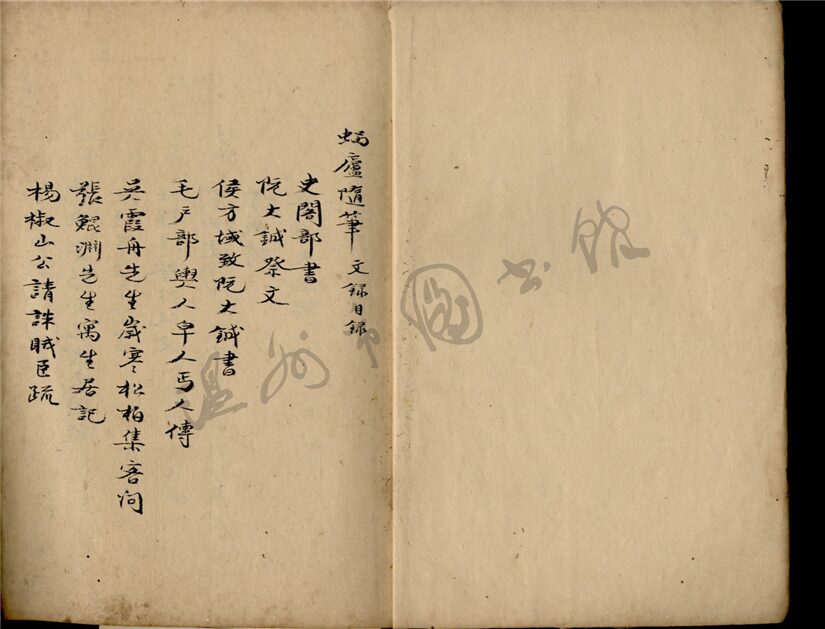 蝸廬隨筆 文錄目錄
史閣部書
阮大鋮祭文
侯方域致阮大鋮書
毛户部輿人皁人丐人傳
吳霞舟先生歲寒松柏集客问
張鯤淵先生寓生居記
楊椒山公請誅賊臣疏
温州市圖书館